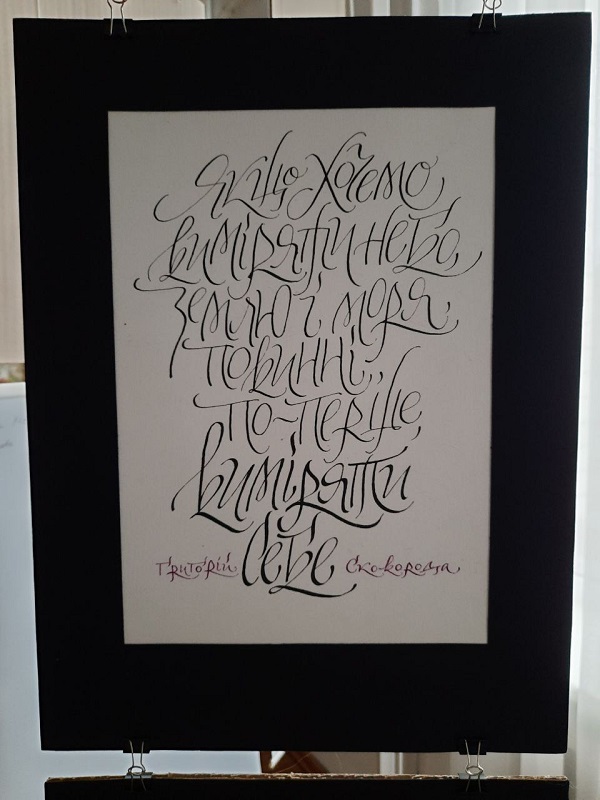 Якщо хочемо
виміряти небо,
землю і моря,
повинні,
по-перше,
виміряти
себе
Григорій Сковорода